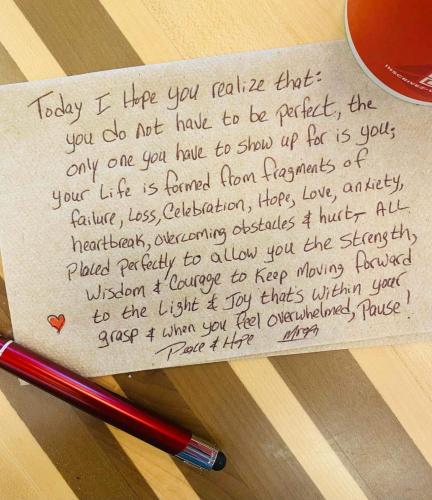 Today I Hope you realize that:
you do not have to be perfect, the
only one you have to show up for is you;
your Life is formed from fragments of
failure, Loss, Celebration, Hope, Love, anxiety,
heartbreak, overcoming obstacles & hurt, ALL
Placed perfectly to allow you the Strength,
Wisdom & Courage to Keep Moving forward
to the Light & Joy that's within your
grasp & when you feel overwhelmed, Pause!
Peace & Hope